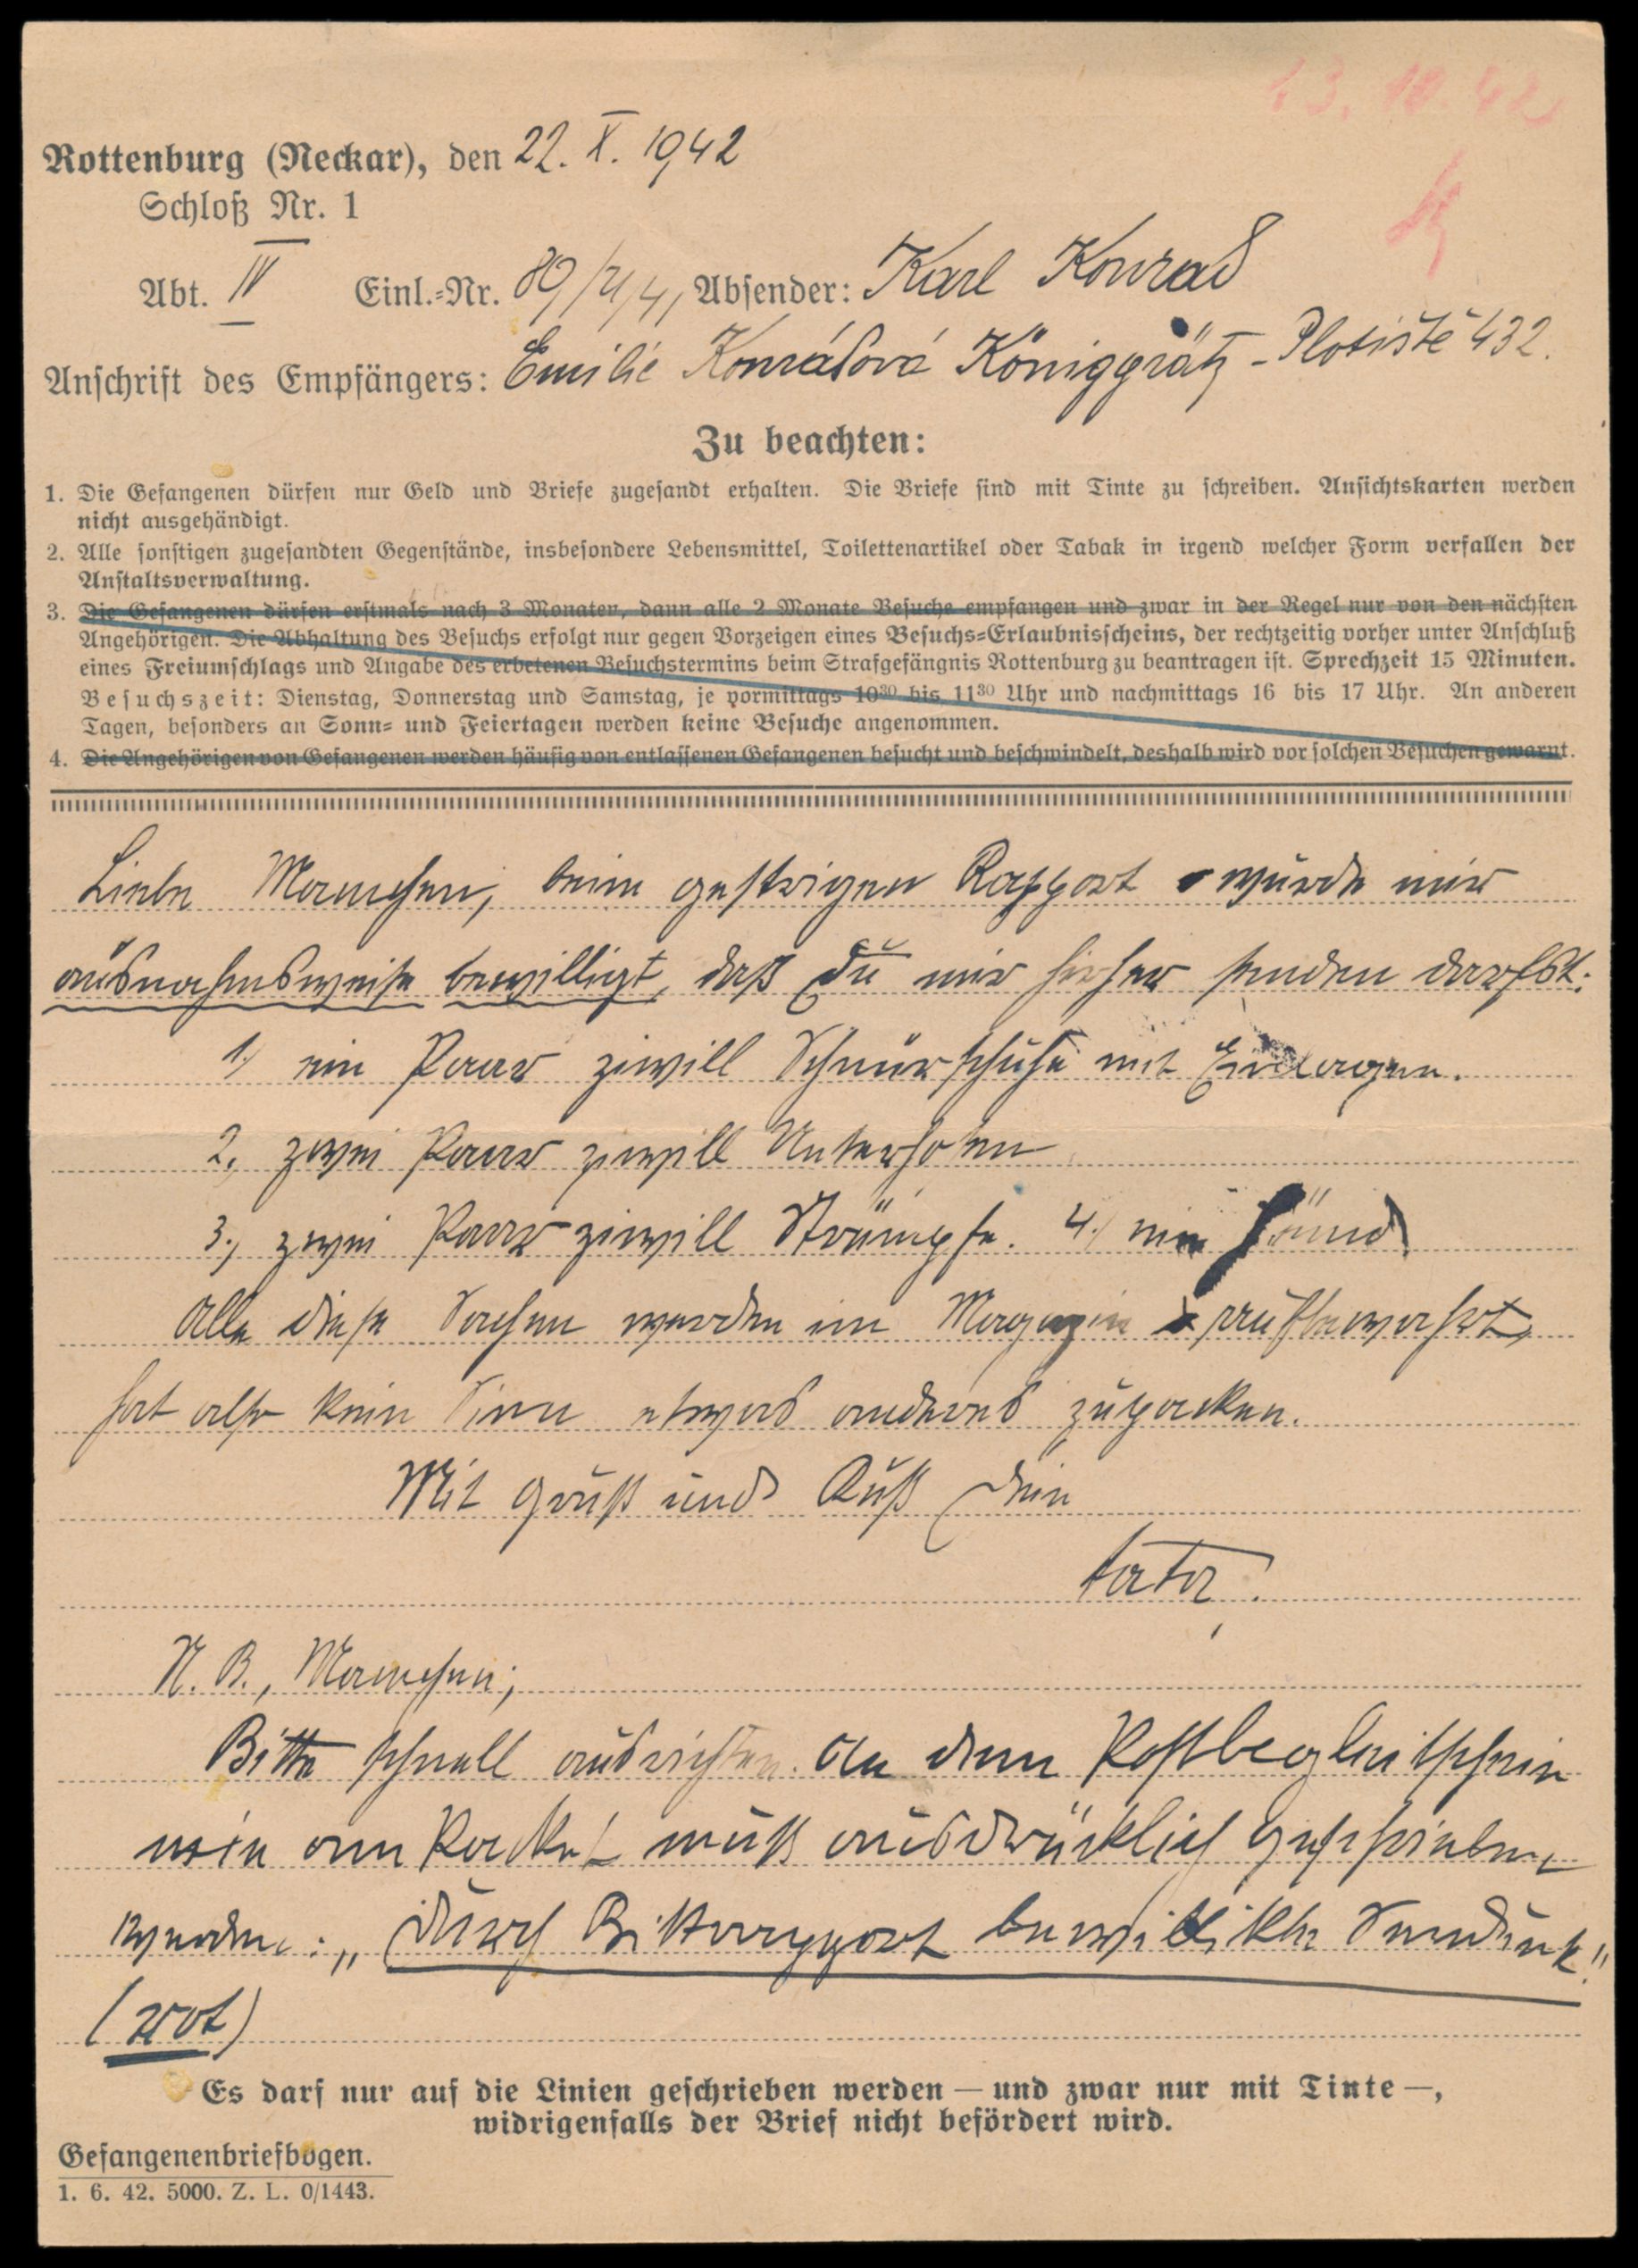 23. 10. 42
Rottenburg (Neckar), den 22. X. 1942
Schloß Nr. 1
Abt. IV Einl.-Nr. 89/41/41 Absender: Karl Konrad
Anschrift des Empfängers: Emilie Konrádová Königgrätz - Plotiště 432.
Zu beachten:
1. Die Gefangenen dürfen nur Geld und Briefe zugesandt erhalten. Die Briefe sind mit Tinte zu schreiben. Ansichtskarten werden
nicht ausgehändigt.
2. Alle sonstigen zugesandten Gegenstände, insbesondere Lebensmittel, Toilettenartikel oder Tabak in irgend welcher Form verfallen der
Anstaltsverwaltung.
3. Die Gefangenen dürfen erstmals nach 3 Monaten, dann alle 2 Monate Besuche empfangen und zwar in der Regel nur von den nächsten
Angehörigen. Die Abhaltung des Besuchs erfolgt nur gegen Vorzeigen eines Besuchs-Erlaubnisscheins, der rechtzeitig vorher unter Anschluß
eines Freiumschlags und Angabe des erbetenen Besuchstermins beim Strafgefängnis Rottenburg zu beantragen ist. Sprechzeit 15 Minuten.
Besuchszeit: Dienstag, Donnerstag und Samstag, je vormittags 10³⁰ bis 11³⁰ Uhr und nachmittags 16 bis 17 Uhr. An anderen
Tagen, besonders an Sonn- und Feiertagen werden keine Besuche angenommen.
4. Die Angehörigen von Gefangenen werden häufig von entlassenen Gefangenen besucht und beschwindelt, deshalb wird vor solchen Besuchen gewarnt.
Liebe Mamchen, beim gestrigen Rapport wurde mir
ausnahmsweise bewilligt, daß Du mir hieher senden darfst:
1.) ein Paar ziwill Schnürschuhe mit Einlagen.
2. zwei Paar ziwill Unterhosen
3.) zwei Paar ziwill Strümpfe. 4.) ein Hämd
Alle diese Sachen werden im Magazin aufbewahrt,
hat also kein Sinn etwas anderes zupacken.
Mit Gruß und Kuß Dein
tata.
N. B., Mamchen;
Bitte schnell ausrichten. An dem Postbegleitschein
wie am Packet muß ausdrücklich geschrieben
werden: „Durch Bittrapport bewillikte Sendunk."
(rot)
Es darf nur auf die Linien geschrieben werden — und zwar nur mit Tinte —,
widrigenfalls der Brief nicht befördert wird.
Gefangenenbriefbogen.
1. 6. 42. 5000. Z. L. 0/1443.